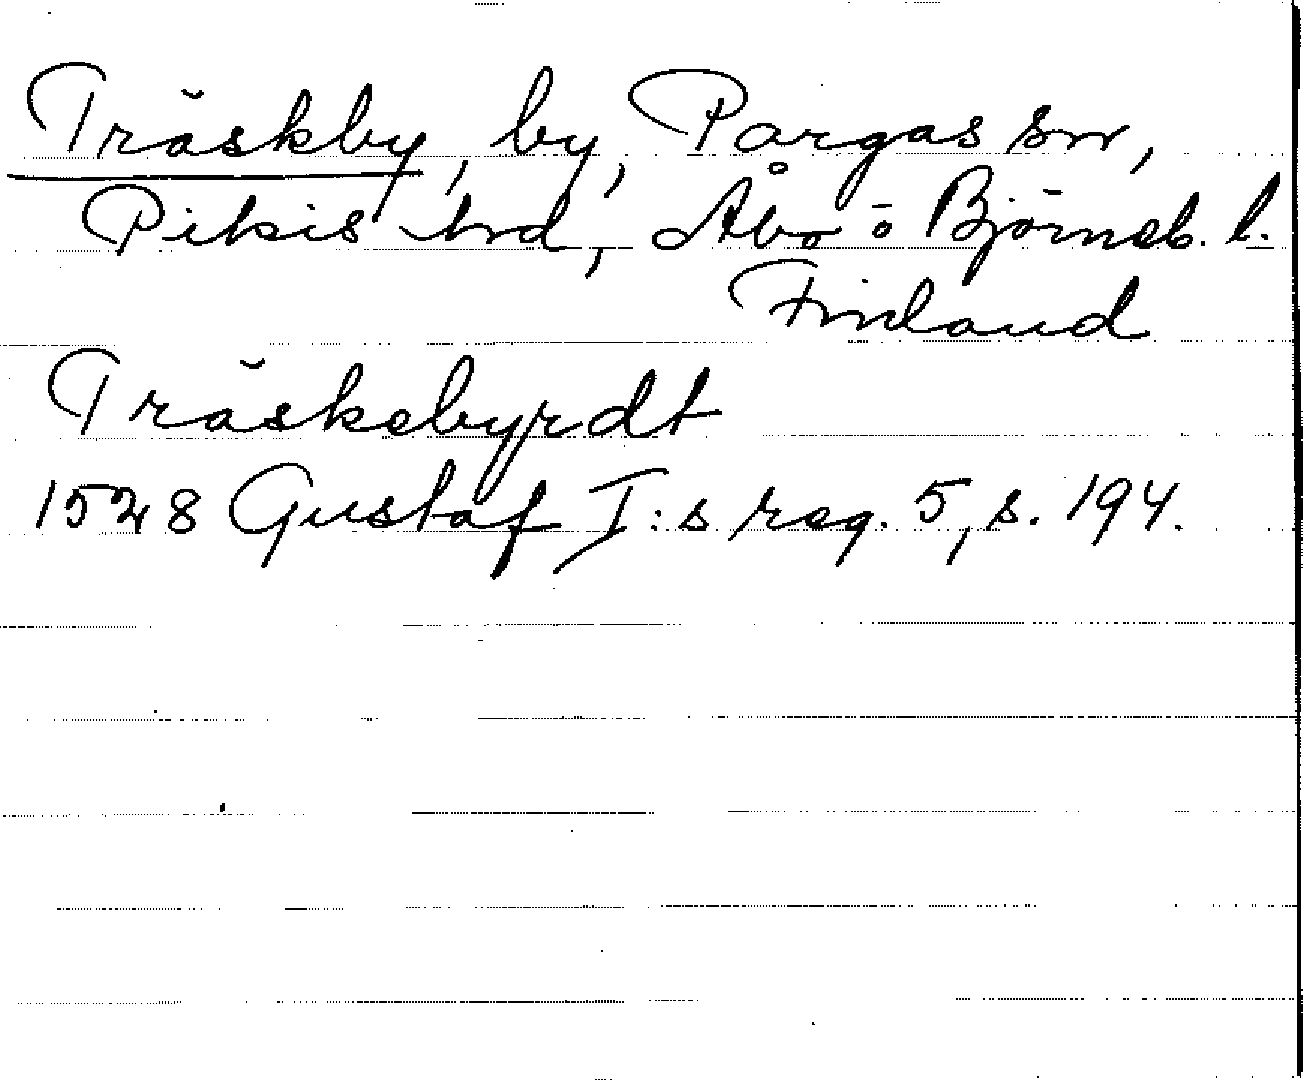 Träskby, by, Pargas sn,
Pikis hrd, Åbo o Björneb. l.
Finland
Träskebyrdt
1528 Gustaf I:s reg. 5, s. 194.